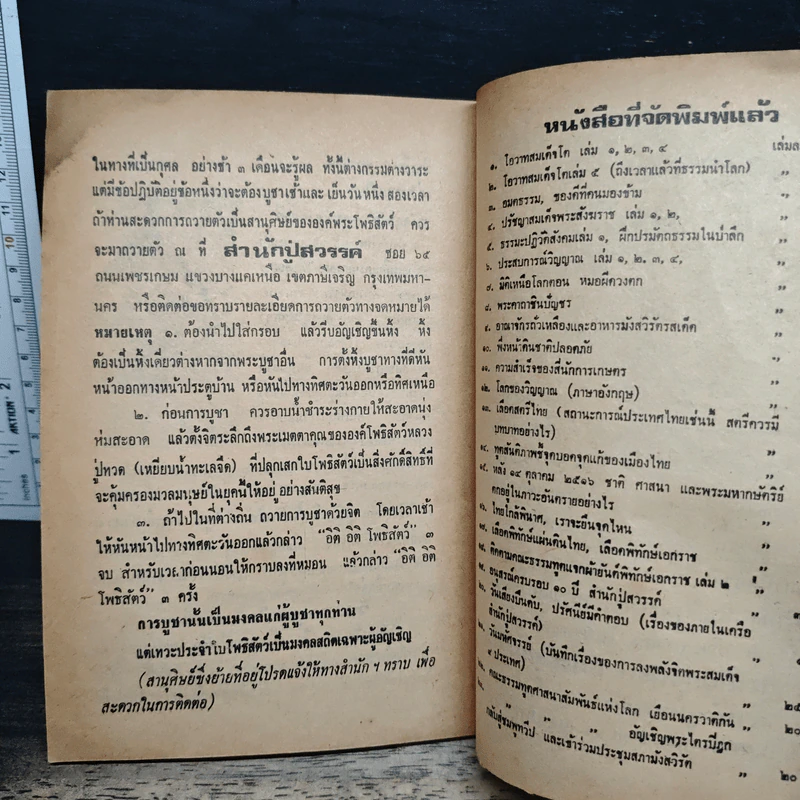 ในทางที่เป็นกุศล อย่างช้า ๓ เดือนจะรู้ผล ทั้งนี้ต่างกรรมต่างวาระ
แต่มีข้อปฏิบัติอยู่ข้อหนึ่งว่าจะต้องบูชาเช้าและเย็นวันหนึ่ง สองเวลา
ถ้าท่านสะดวกการถวายตัวเป็นสานุศิษย์ขององค์พระโพธิสัตว์ ควร
จะมาถวายตัว ณ ที่ สำนักปู่สวรรค์ ซอย ๖๕
ถนนเพชรเกษม แขวงบางแคเหนือ เขตภาษีเจริญ กรุงเทพมหา-
นคร หรือติดต่อขอทราบรายละเอียดการถวายตัวทางจดหมายได้
หมายเหตุ ๑. ต้องนำไปใส่กรอบ แล้วรีบอัญเชิญขึ้นหิ้ง หิ้ง
ต้องเป็นหิ้งเดี่ยวต่างหากจากพระบูชาอื่น การตั้งหิ้งบูชาทางที่ดีหัน
หน้าออกทางหน้าประตูบ้าน หรือหันไปทางทิศตะวันออกหรือทิศเหนือ
๒. ก่อนการบูชา ควรอาบน้ำชำระร่างกายให้สะอาดนุ่ง
ห่มสะอาด แล้วตั้งจิตระลึกถึงพระเมตตาคุณขององค์โพธิสัตว์หลวง
ปู่ทวด (เหยียบน้ำทะเลจืด) ที่ปลุกเสกใบโพธิสัตว์เป็นสิ่งศักดิ์สิทธิ์ที่
จะคุ้มครองมวลมนุษย์ในยุคนี้ให้อยู่ อย่างสันติสุข
๓. ถ้าไปในที่ต่างถิ่น ถวายการบูชาด้วยจิต โดยเวลาเช้า
ให้หันหน้าไปทางทิศตะวันออกแล้วกล่าว “อิติ อิติ โพธิสัตว์” ๓
จบ สำหรับเวลาก่อนนอนให้กราบลงที่หมอน แล้วกล่าว “อิติ อิติ
โพธิสัตว์” ๓ ครั้ง
การบูชานั้นเป็นมงคลแก่ผู้บูชาทุกท่าน
แต่เทวะประจำใบโพธิสัตว์เป็นมงคลสถิตเฉพาะผู้อัญเชิญ
(สานุศิษย์ซึ่งย้ายที่อยู่โปรดแจ้งให้ทางสำนัก ฯ ทราบ เพื่อ
สะดวกในการติดต่อ)
หนังสือที่จัดพิมพ์แล้ว
๑. โอวาทสมเด็จโต เล่ม ๑, ๒, ๓, ๔ เล่มล
๒. โอวาทสมเด็จโตเล่ม ๕ (ถึงเวลาแล้วที่ธรรมนำโลก) ”
๓. อมตธรรม, ของดีที่คนมองข้าม ”
๔. ปรัชญาสมเด็จพระสังฆราช เล่ม ๑, ๒, ”
๕. ธรรมะปฏิวัติสังคมเล่ม ๑, ฝึกปรมัตถธรรมในป่าลึก ”
๖. ประสบการณ์วิญญาณ เล่ม ๑, ๒. ๓, ๔, ”
๗. มิติเหนือโลกตอน หมอผีควงคต ”
๘. พระคาถาชินบัญชร ”
๙. อาณาจักรถั่วเหลืองและอาหารมังสวิรัตรสเด็ด ”
๑๐. พึ่งหน้าดินชาติปลอดภัย ”
๑๑. ความสำเร็จของสีนักการเกษตร ”
๑๒. โลกของวิญญาณ (ภาษาอังกฤษ) ”
๑๓. เลือดสตรีไทย (สถานะการณ์ประเทศไทยเช่นนี้ สตรีควรมี
บทบาทอย่างไร) ”
๑๔. ทูตสันติภาพชี้จุดบอดจุดแก้ของเมืองไทย ”
๑๕. หลัง ๑๔ ตุลาคม ๒๕๑๖ ชาติ ศาสนา และพระมหากษัตริย์
ตกอยู่ในภาวะอันตรายอย่างไร ”
ไทยใกล้พินาศ, เราจะยืนจุดไหน ”
เลือดพิทักษ์แผ่นดินไทย, เลือดพิทักษ์เอกราช ”
ติดตามคณะธรรมทูตแจกผ้ายันต์พิทักษ์เอกราช เล่ม ๒ ”
อนุสรณ์ครบรอบ ๑๐ ปี สำนักปู่สวรรค์ ”
วันเสียงปืนดับ, ปรัศนีย์มีคำตอบ (เรื่องของภายในเครือ
สำนักปู่สวรรค์) ”
วันมหัศจรรย์ (บันทึกเรื่องของการลงพลังจิตพระสมเด็จ
๙ ประเทศ) ”
คณะธรรมทูตศาสนาสัมพันธ์แห่งโลก เยือนนครวาติกัน ” ๒๕
” ” อัญเชิญพระไตรปิฎก ๒๐
กลับสู่ชมพูทวีป และเข้าร่วมประชุมสภามังสวิรัต
” ๒๐